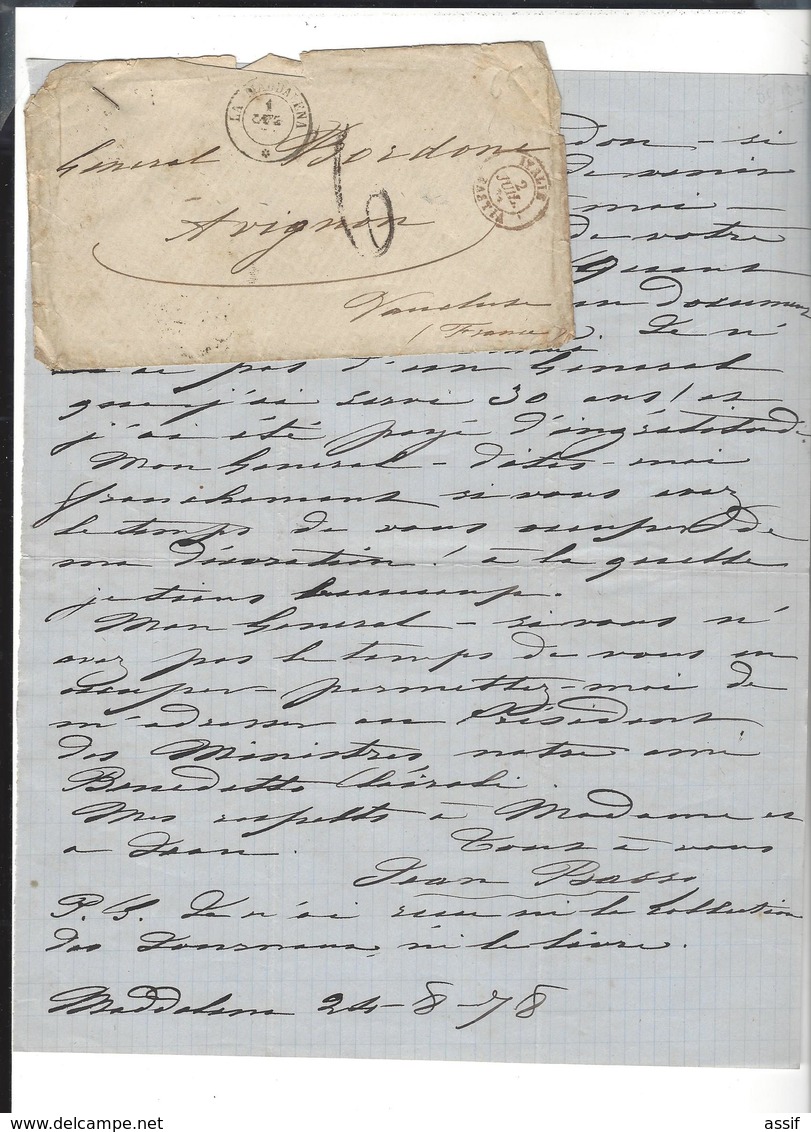 LA MADDALENA
1
General Bordone
6
ITALIE
2
JUIL
Avignon
Vaucluse
(France)
don - si
venir
moi -
de votre
Quant
un document
Je n'
pas d'un General
que j'ai servi 30 ans! et
j'ai été payé d'ingratitude
Mon General - dites-moi
franchement si vous avez
le temps de vous occuper de
ma décoration! à la quelle
je tiens beaucoup.
Mon General - si vous n'
avez pas le temps de vous en
occuper - permettez-moi de
m'adresser au Président
des Ministres, notre ami
Benedetto Cairoli.
Mes respects à Madame et
a Jean. Tout à vous
Jean Basso
P. S. Je n'ai reçu ni la Collection
des Journaux, ni le livre.
Maddalena 24-8-78
delcampe.net
assif